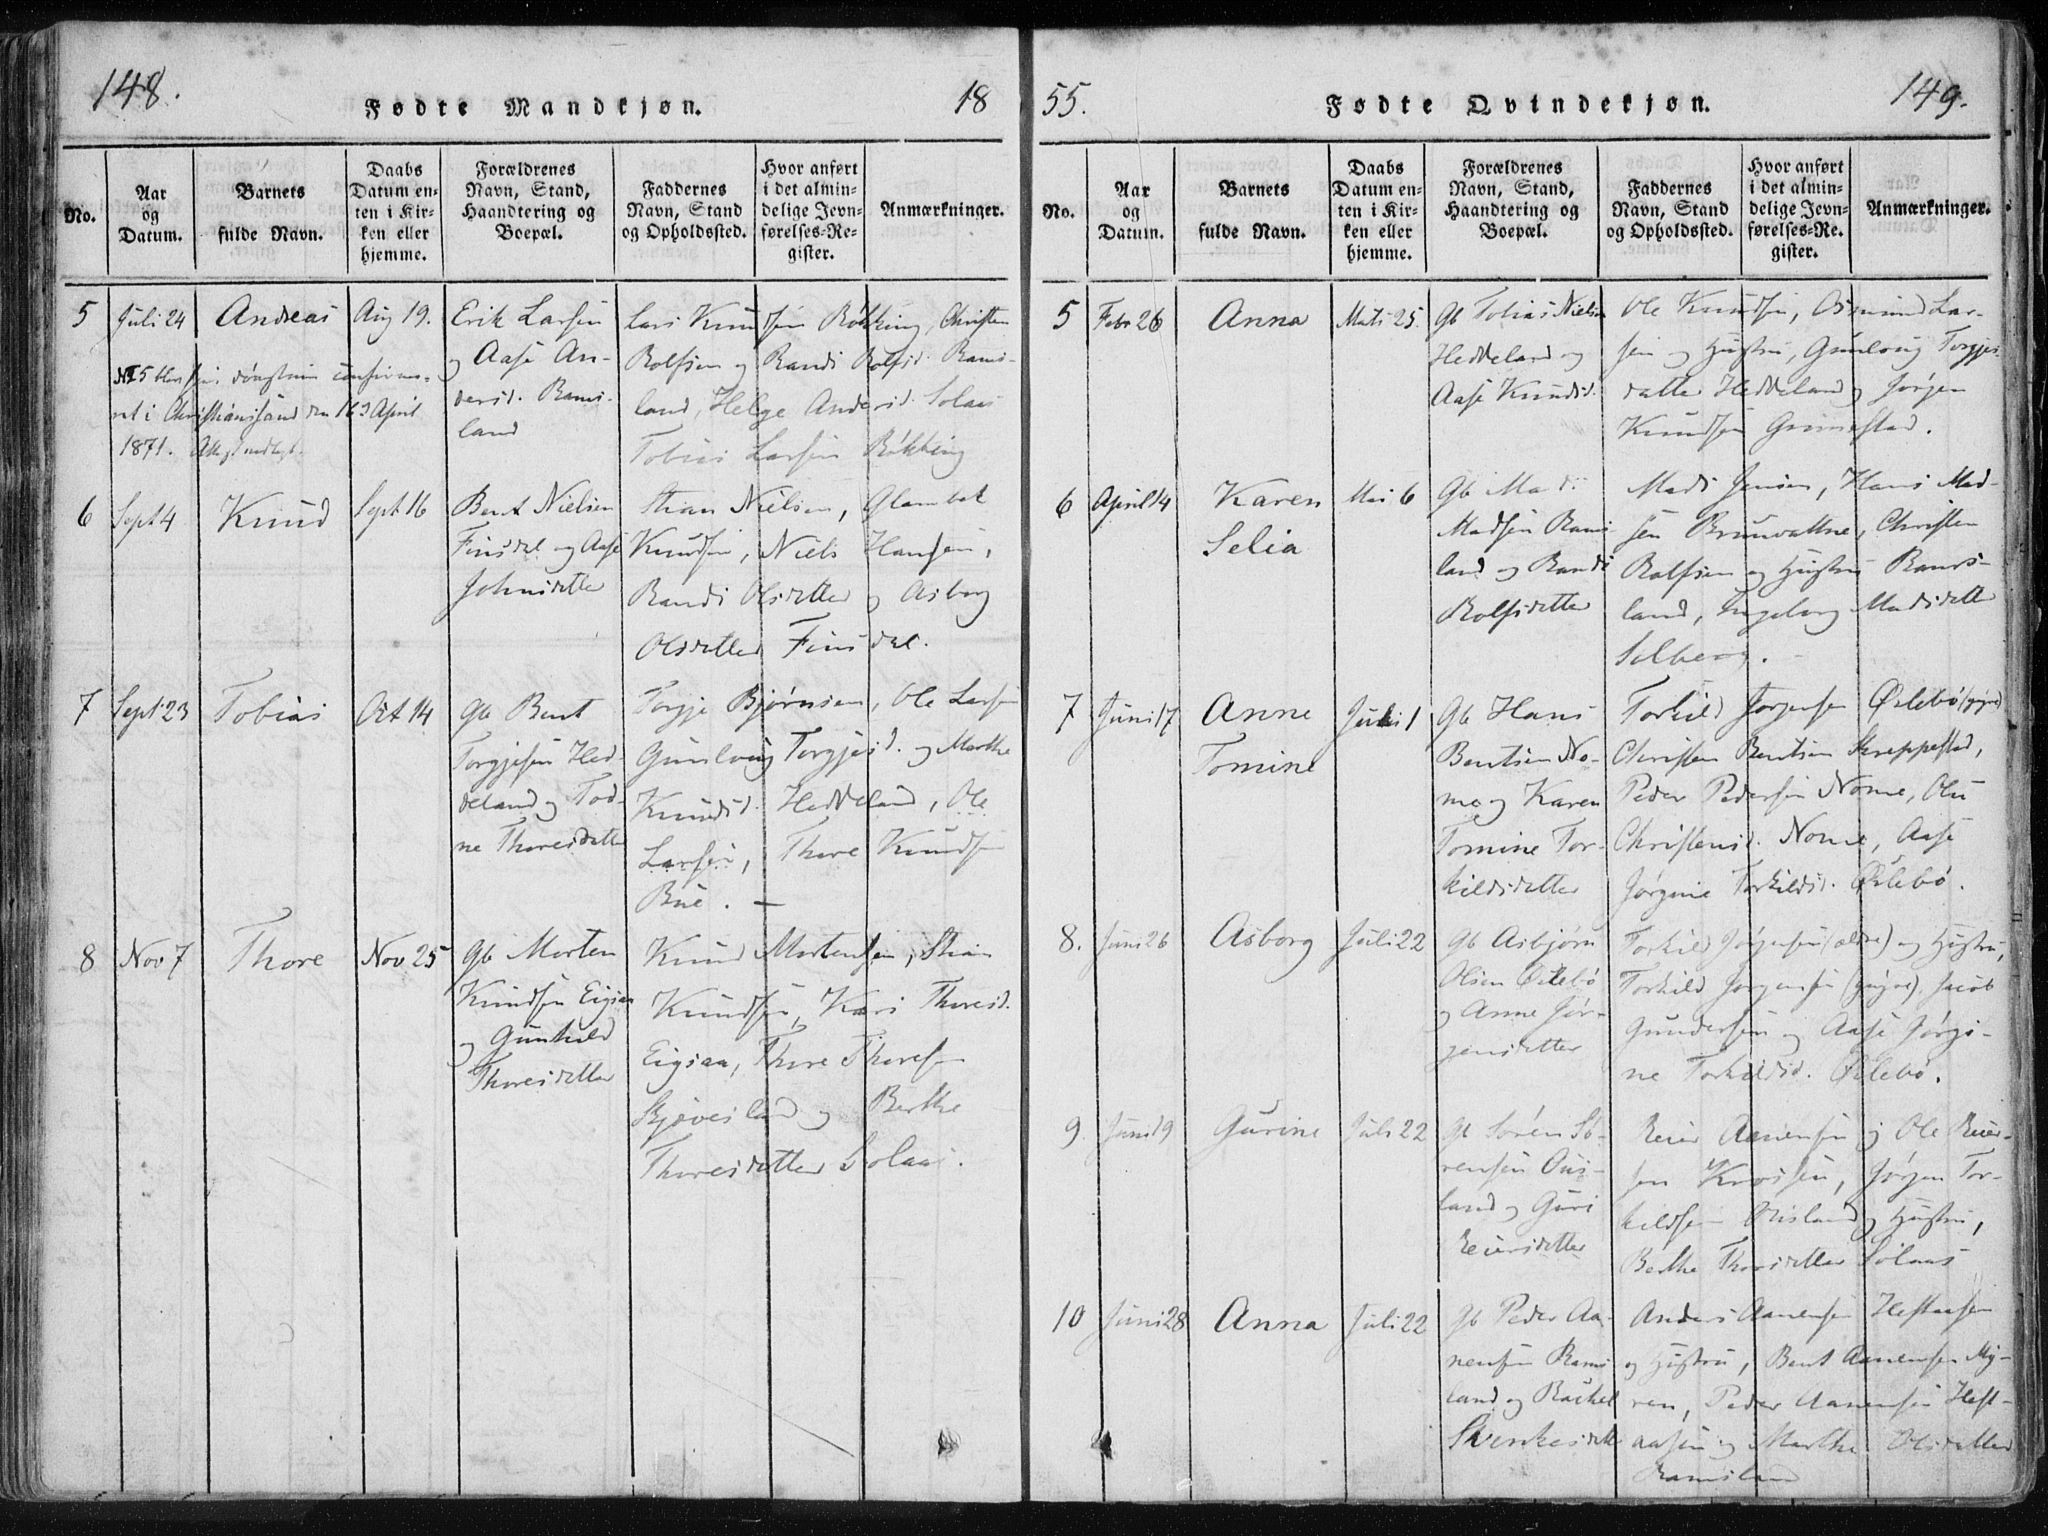 148.
Fødte Mandkjøn.
18
No.
Aar
og
Datum.
Barnets
fulde Navn.
Daabs
Datum en-
ten i Kir-
ken eller
hjemme.
Forældrenes
Navn, Stand,
Haandtering og
Boepæl.
Faddernes
Navn, Stand
og Opholdssted.
Hvor anført
i det almin-
delige Jevn-
førelses-Re-
gister.
Anmærkninger.
5
Juli 24
Andreas
Aug 19.
Erik Larsen
og Aase An-
dersd. Rams-
land
Lars Knudsen Røkking, Christen
Rolfsen og Randi Rolfsd. Rams-
land, Helge Andersd. Solaas
Tobias Larsen Røkking
No 5 confirme-
ret i Christianssand den 163 April
1871.
6
Sept 4
Knud
Sept 16
Bent Nielsen
Finsdal og Aase
Johnsdatter
Stian Nielsen,
Knudsen, Niels Hansen,
Randi Olsdatter og Asborg
Olsdatter Finsdal.
7
Sept 23
Tobias
Oct 14
Gb Bent
Torgjesen Hed-
deland og Tod-
ne Thoresdatter
Torgje Bjørnsen, Ole Larsen
Gunloug Torgjesd. og Marthe
Knudsd. Heddeland, Ole
Larsen, Thore Knudsen
Bue. —
8
Nov 7
Thore
Nov 25
Gb Morten
Knudsen Eigsaa
og Gunhild
Thoresdatter
Knud Mortensen, Stian
Knudsen, Kari Thoresd.
Eigsaa, Thore Thoresen
Skjævesland og Berthe
Thoresdatter Solaas.
55.
Fødte Qvindekjøn.
149.
No.
Aar
og
Datum.
Barnets
fulde Navn.
Daabs
Datum en-
ten i Kir-
ken eller
hjemme.
Forældrenes
Navn, Stand,
Haandtering og
Boepæl.
Faddernes
Navn, Stand
og Opholdssted.
Hvor anført
i det almin-
delige Jevn-
førelses-Re-
gister.
Anmærkninger.
5
Febr 26
Anna
Marts 25.
Gb Tobias Nielsen
Heddeland og
Aase Knudsd.
Ole Knudsen, Osmund Lar-
sen og Hustru, Gunloug Torgjes
datter Heddeland og Jørgen
Knudsen Grimestad.
6
April 14
Karen
Selia
Mai 6
Gb Mads
Madsen Rams
land og Randi
Rolfsdatter
Mads Jensen, Hans Mad-
sen Brunvatne, Christen
Rolfsen og Hustru Rams-
land, Ingeborg Madsdatter
Solberg.
7
Juni 17
Anne
Tomine
Juli 1
Gb Hans
Bentsen No-
me og Karen
Tomine Tor-
kildsdatter
Torkild Jørgensen Øslebø (yngre)
Christen Bentsen Skreppestad,
Peder Pedersen Nome, Olu
Christensd. Nome, Aase
Jørgine Torkildsd. Øslebø.
8.
Juni 26
Asborg
Juli 22
Gb Asbjørn
Olsen Øslebø
og Anne Jør-
gensdatter
Torkild Jørgensen (ældre) og Hustru,
Torkild Jørgensen (yngre). Jacob
Gundersen og Aase Jørgi-
ne Torkildsd. Øslebø.
9.
Juni 9
Gurine
Juli 22
Gb Søren Sø-
rensen Ous-
land og Guri
Reiersdatter
Reier Aanensen og Ole Reier-
sen Krossen, Jørgen Tor-
kildsen Ousland og Hustru,
Berthe Thorsdatter Solaas
10
Juni 28
Anna
Juli 22
Gb Peder Aa-
nensen Rams
land og Rachel
Svenkesdatt
Anders Aanensen Hestaasen
og Hustru, Bent Aanensen My-
ren, Peder Aanensen Hest-
aasen og Marthe Olsdatter
Ramsland